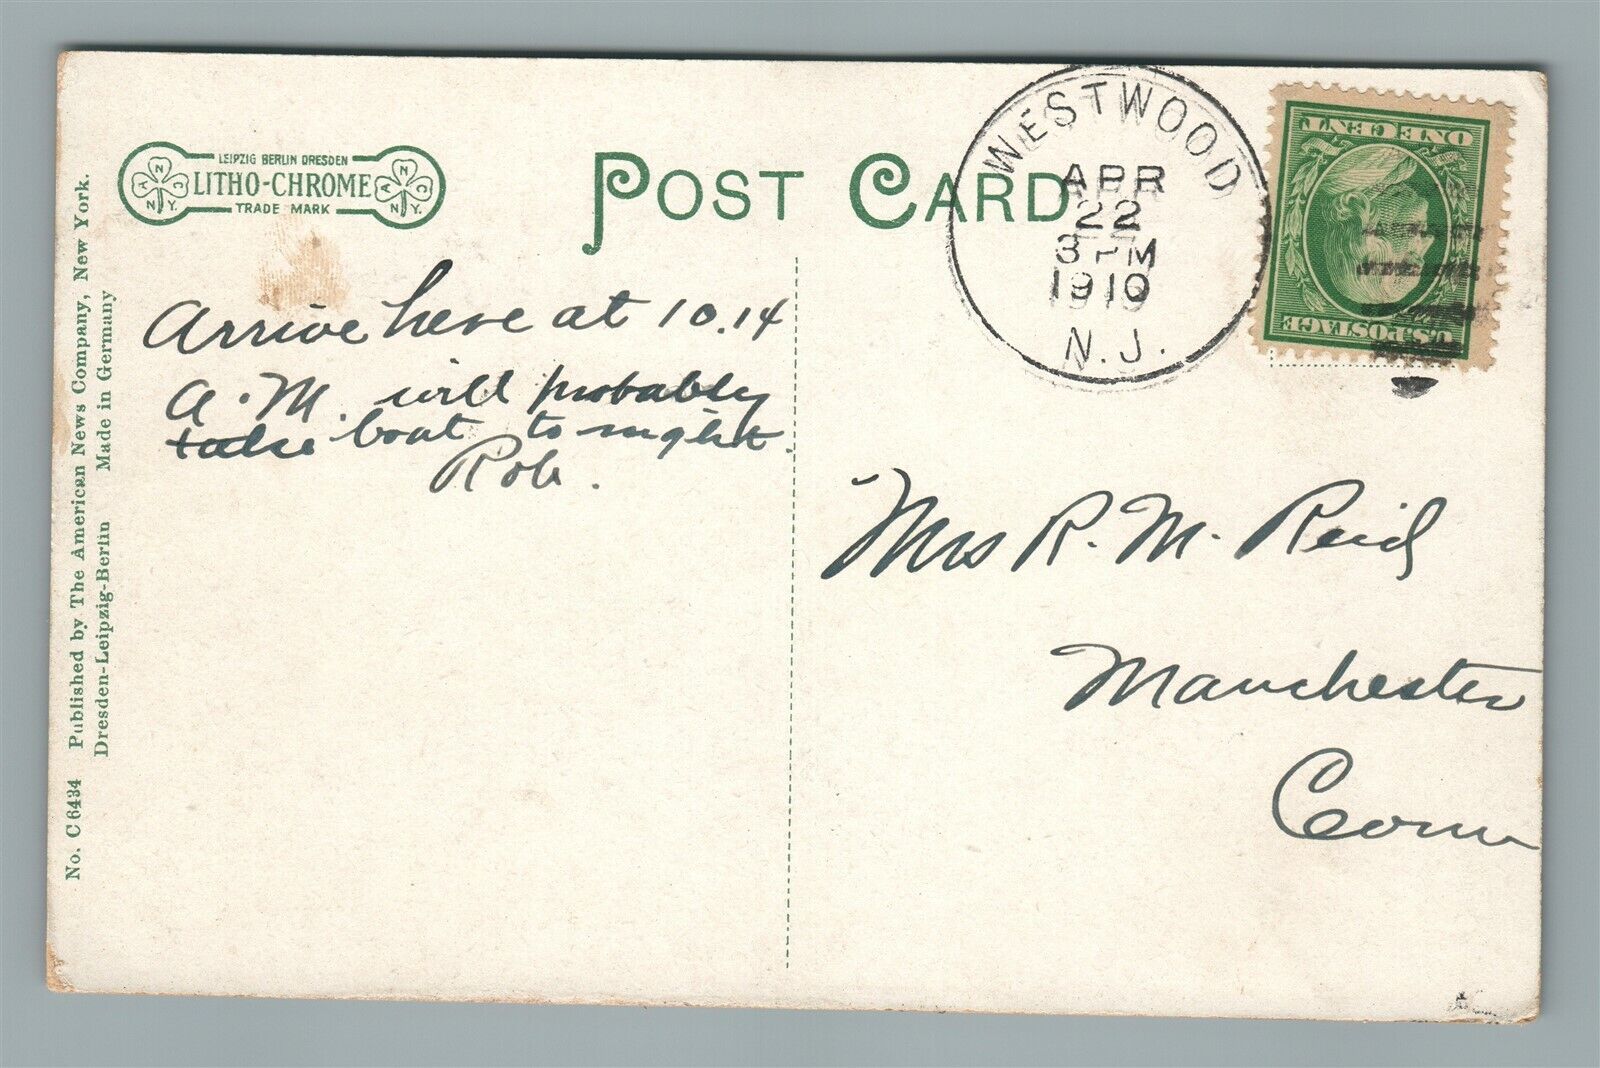 LEIPZIG BERLIN DRESDEN
LITHO-CHROME
TRADE MARK
A N C
N.Y.
A N C
N.Y.
POST CARD
WESTWOOD
APR
22
3 PM
1910
N.J.
ONE CENT
U.S. POSTAGE
Arrive here at 10.14
A.M. will probably
take boat to night.
Rob.
Mrs R. M. Reid
Manchester
Conn
No. C 6434 Published by The American News Company, New York.
Dresden-Leipzig-Berlin Made in Germany